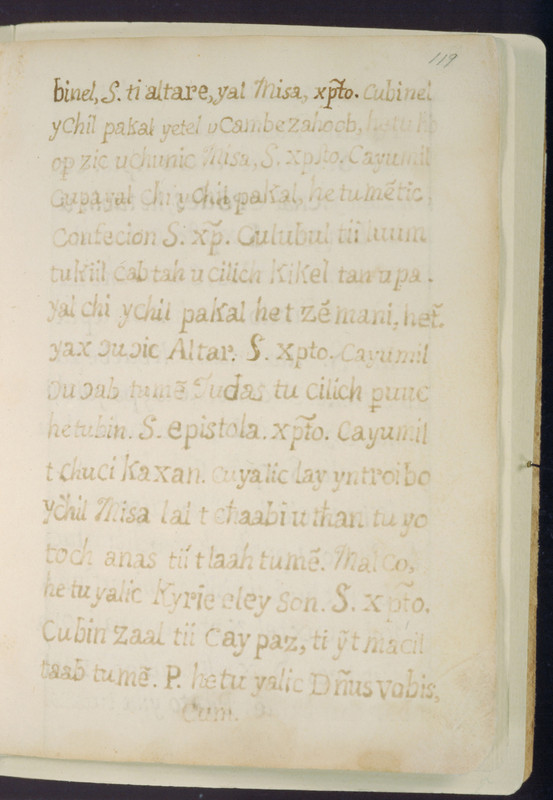 119
binel, S. ti altare, yal Misa, xp̃to. cubinel
ychil pakal yetel v Cambezahoob, hetu
op zic uchunic Misa, S. xp̃to. Cayumil
Cupayal chi ychil pakal, he tumẽtic
Confecion S. xp̃. Culubul tii luum
tukiil cab tah u cilich kikel tan u pa.
yal chi ychil pakal het zẽ mani, het̃.
yax ɔuɔic Altar. S. xpto. Cayumil
ɔuɔab tumẽ Judas tu cilich punc
he tubin. S. epistola. xp̃to. Cayumil
t chuci kaxan. cuyalic lay yntroibo
ychil Misa lai t chaabi u than tu yo
toch anas tii t laah tumẽ. Malco,
he tu yalic Kyrie eley son. S. xpto.
Cubin zaal tii Caypaz, ti ỹt macil
taab tumẽ. P. he tu yalic Dñus vobis,
Cum.